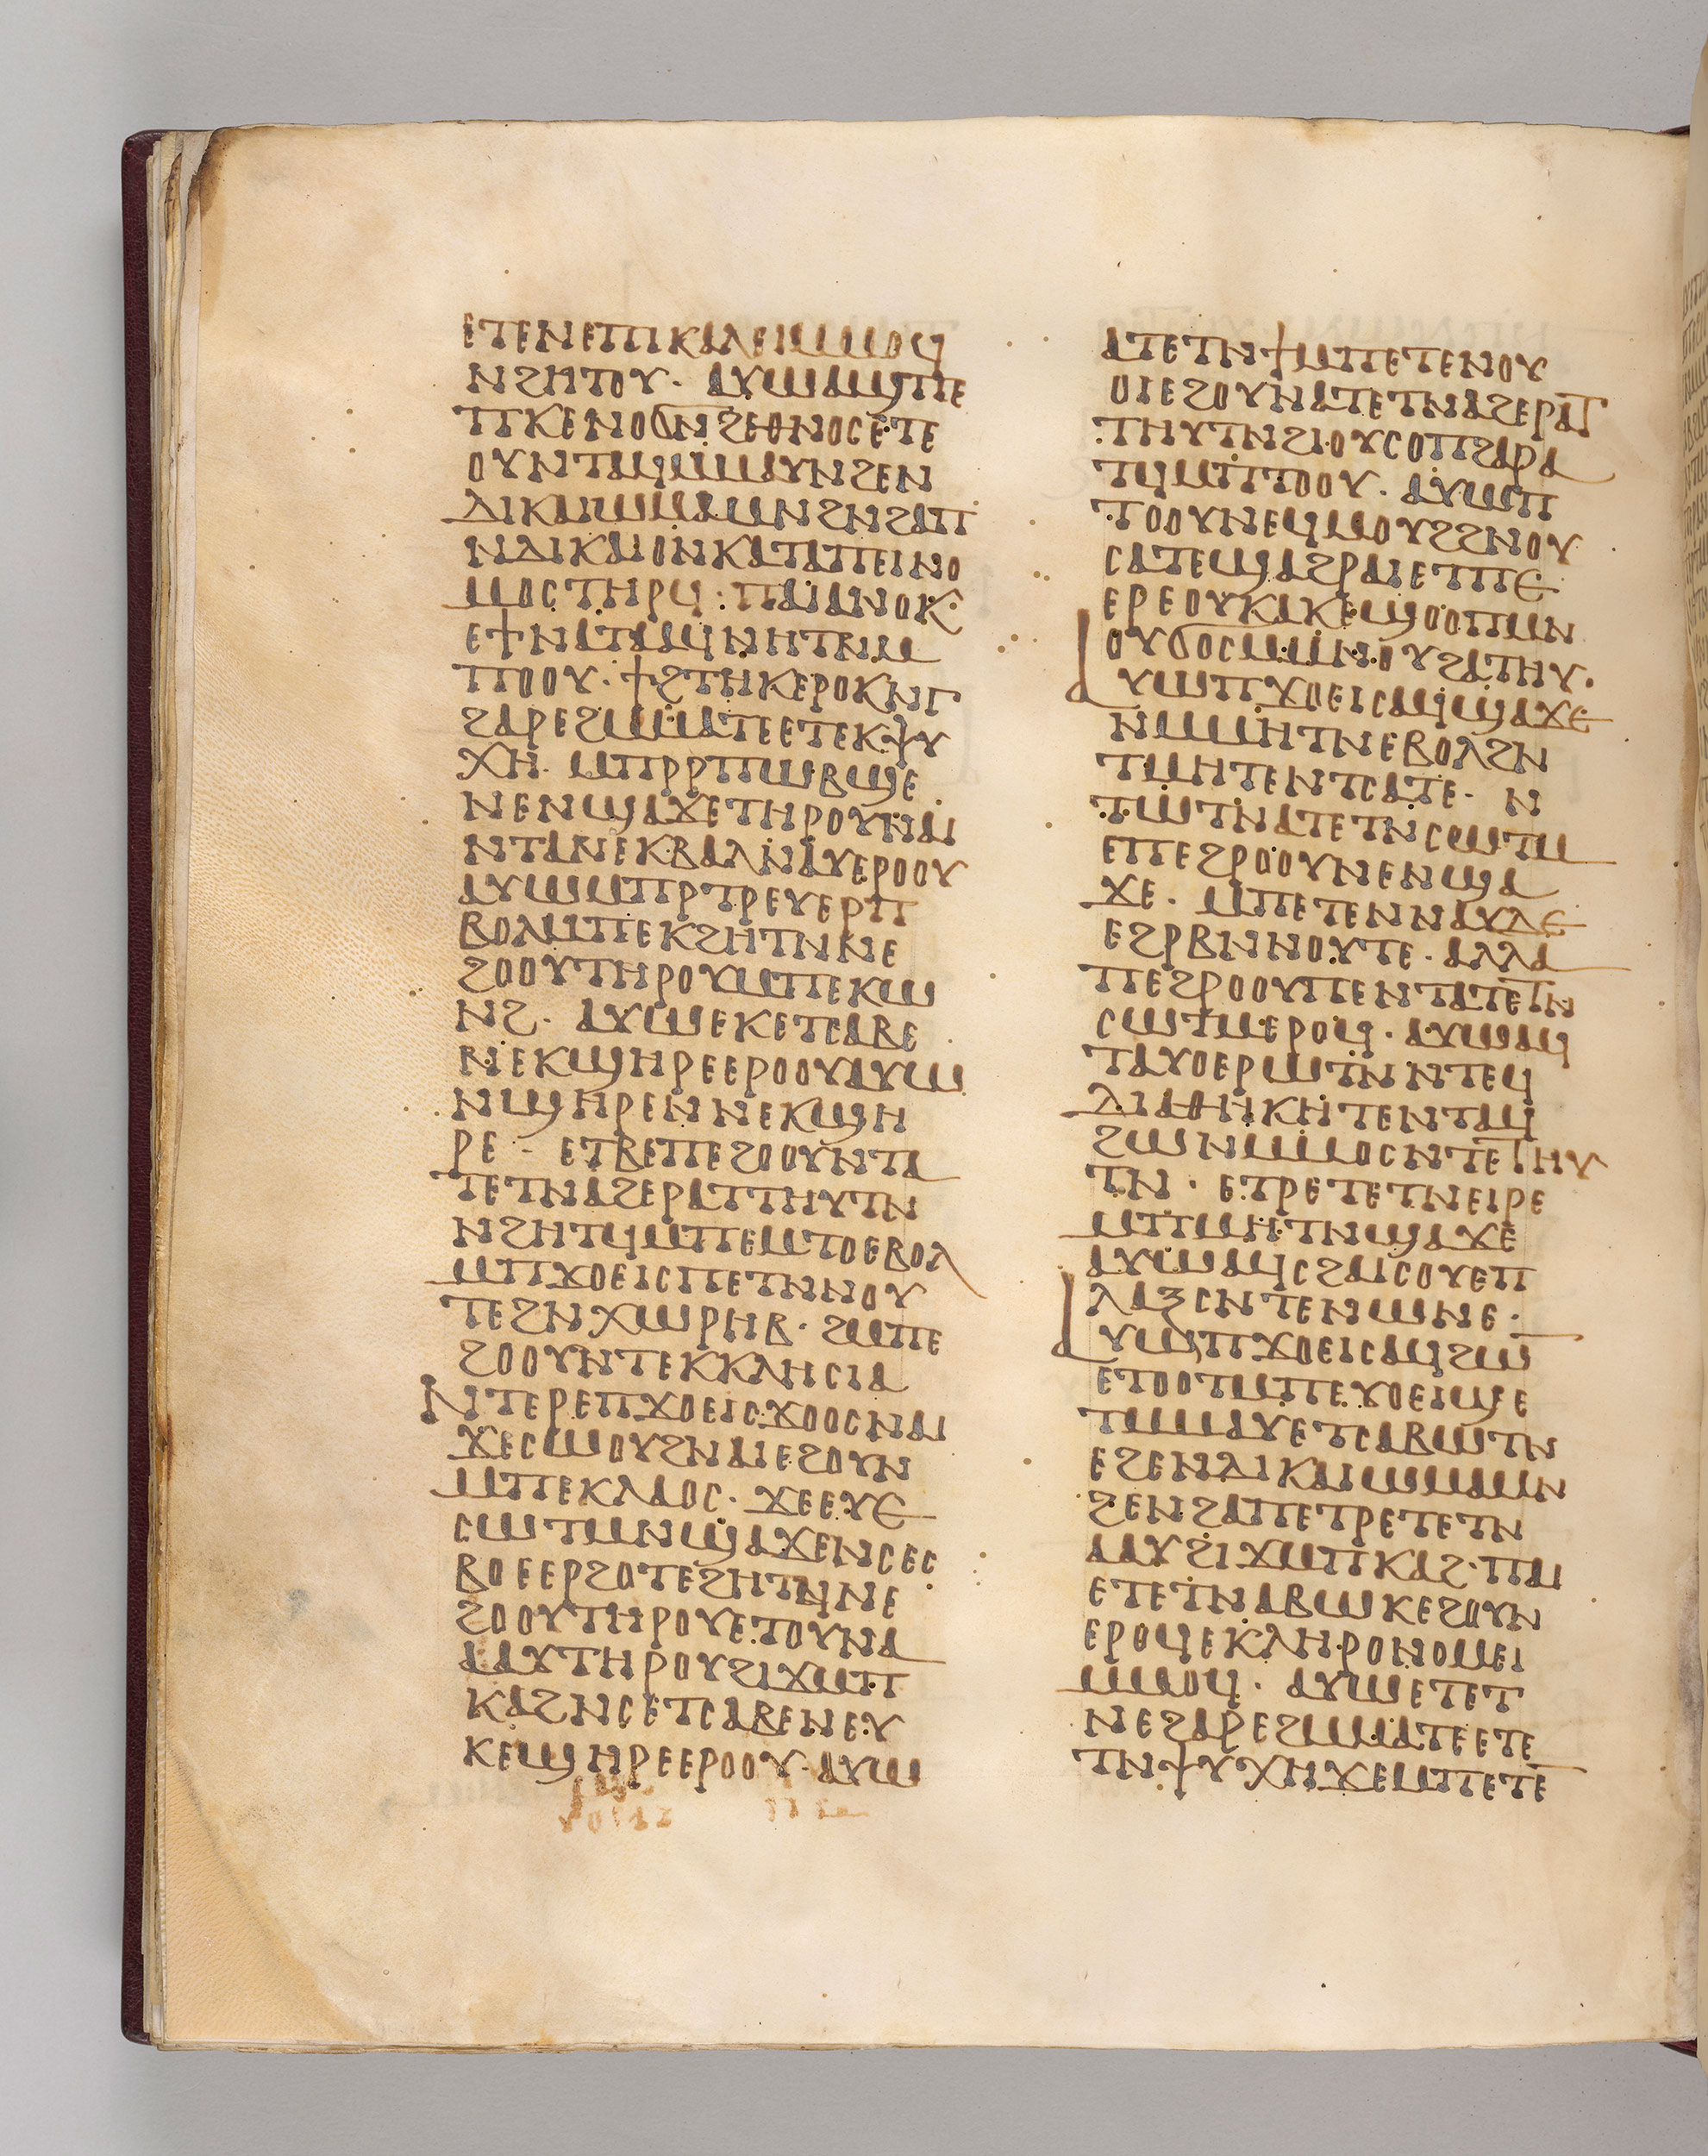 ⲉⲧⲉⲛⲉⲡⲓⲕⲁⲗⲉⲓⲙⲙⲟϥ
ⲛϩⲏⲧⲟⲩ· ⲁⲩⲱⲁϣⲡⲉ
ⲡⲕⲉⲛⲟϭⲛϩⲉⲑⲛⲟⲥⲉⲧⲉ
ⲟⲩⲛⲧⲁϥⲙⲙⲁⲩⲛϩⲉⲛ
ⲇⲓⲕⲁⲓⲱⲙⲁⲙⲛϩⲛϩⲁⲡ
ⲛⲇⲓⲕⲁⲓⲟⲛⲕⲁⲧⲁⲡⲉⲓⲛⲟ
ⲙⲟⲥⲧⲏⲣϥ: ⲡⲁⲓⲁⲛⲟⲕ·
ⲉϯⲛⲁⲧⲁⲁϥⲛⲏⲧⲛⲙ
ⲡⲟⲟⲩ· ϯϩⲧⲏⲕⲉⲣⲟⲕⲛⲅ
ϩⲁⲣⲉϩⲙⲙⲁⲧⲉⲉⲧⲉⲕⲯⲩ
ⲭⲏ· ⲙⲡⲣⲣⲡⲱⲃϣⲉ
ⲛⲉⲛϣⲁϫⲉⲧⲏⲣⲟⲩⲛⲁⲓ
ⲛⲧⲁⲛⲉⲕⲃⲁⲗⲛⲁⲩⲉⲣⲟⲟⲩ
ⲁⲩⲱⲙⲡⲣⲧⲣⲉⲩⲉⲣⲡ
ⲃⲟⲗⲙⲡⲉⲕϩⲏⲧⲛⲛⲉ
ϩⲟⲟⲩⲧⲏⲣⲟⲩⲙⲡⲉⲕⲱ
ⲛϩ· ⲁⲩⲱⲉⲕⲉⲧⲥⲁⲃⲉ
ⲛⲉⲕϣⲏⲣⲉⲉⲣⲟⲟⲩⲁⲩⲱ
ⲛϣⲏⲣⲉⲛⲛⲉⲕϣⲏ
ⲣⲉ· ⲉⲧⲃⲉⲡⲉϩⲟⲟⲩⲛⲧⲁ
ⲧⲉⲧⲛⲁϩⲉⲣⲁⲧⲧⲏⲩⲧⲛ
ⲛϩⲏⲧϥⲙⲡⲉⲙⲧⲟⲉⲃⲟⲗ
ⲙⲡϫⲟⲉⲓⲥⲡⲉⲧⲛⲛⲟⲩ
ⲧⲉϩⲛⲭⲱⲣⲏⲃ· ϩⲙⲡⲉ
ϩⲟⲟⲩⲛⲧⲉⲕⲕⲗⲏⲥⲓⲁ
ⲛⲧⲉⲣⲉⲡϫⲟⲉⲓⲥϫⲟⲟⲥⲛⲁⲓ
ϫⲉⲥⲱⲟⲩϩⲛⲁⲓⲉϩⲟⲩⲛ
ⲙⲡⲉⲕⲗⲁⲟⲥ· ϫⲉⲉⲩⲉ
ⲥⲱⲧⲙⲛϣⲁϫⲉⲛⲥⲉⲥ
ⲃⲟⲉⲉⲣϩⲟⲧⲉϩⲏⲧⲛⲛⲉ
ϩⲟⲟⲩⲧⲏⲣⲟⲩⲉⲧⲟⲩⲛⲁ
ⲁⲁⲩⲧⲏⲣⲟⲩϩⲓϫⲙⲡ
ⲕⲁϩⲛⲥⲉⲧⲥⲁⲃⲉⲛⲉⲩ
ⲕⲉϣⲏⲣⲉⲉⲣⲟⲟⲩ· ⲁⲩⲱ
ⲁⲧⲉⲧⲛϯⲙⲡⲉⲧⲉⲛⲟⲩ
ⲟⲓⲉϩⲟⲩⲛⲁⲧⲉⲧⲛⲁϩⲉⲣⲁⲧ
ⲧⲏⲩⲧⲛϩⲓⲟⲩⲥⲟⲡϩⲁⲣⲁ
ⲧϥⲙⲡⲧⲟⲟⲩ· ⲁⲩⲱⲡ
ⲧⲟⲟⲩⲛⲉϥⲙⲟⲩϩϩⲛⲟⲩ
ⲥⲁⲧⲉϣⲁϩⲣⲁⲓⲉⲧⲡⲉ
ⲉⲣⲉⲟⲩⲕⲁⲕⲉϣⲟⲟⲡⲙⲛ
ⲟⲩϭⲟⲥⲙⲙⲛⲟⲩϩⲁⲧⲏⲩ·
ⲁⲩⲱⲡϫⲟⲉⲓⲥⲁϥϣⲁϫⲉ
ⲛⲙⲙⲏⲧⲛⲉⲃⲟⲗϩⲛ
ⲧⲙⲏⲧⲉⲛⲧⲥⲁⲧⲉ· ⲛ
ⲧⲱⲧⲛⲁⲧⲉⲧⲛⲥⲱⲧⲙ
ⲉⲡⲉϩⲣⲟⲟⲩⲛⲉⲛϣⲁ
ϫⲉ· ⲙⲡⲉⲧⲉⲛⲛⲁⲩⲇⲉ
ⲉϩⲣⲃⲛⲛⲟⲩⲧⲉ· ⲁⲗⲗⲁ
ⲡⲉϩⲣⲟⲟⲩⲡⲉⲛⲧⲁⲧⲉⲧⲛ
ⲥⲱⲧⲙⲉⲣⲟϥ· ⲁⲩⲱⲁϥ
ⲧⲁⲩⲟⲉⲣⲱⲧⲛⲛⲧⲉϥ
ⲇⲓⲁⲑⲏⲕⲏⲧⲉⲛⲧⲁϥ
ϩⲱⲛⲙⲙⲟⲥⲛⲧⲉⲧⲏⲩ
ⲧⲛ· ⲉⲧⲣⲉⲧⲉⲧⲛⲉⲓⲣⲉ
ⲙⲡⲙⲏⲧⲛϣⲁϫⲉ
ⲁⲩⲱⲁϥⲥϩⲁⲓⲥⲟⲩⲉⲡ
ⲗⲁⲝⲥⲛⲧⲉⲛⲱⲛⲉ·
ⲁⲩⲱⲡϫⲟⲉⲓⲥⲁϥϩⲱ
ⲉⲧⲟⲟⲧⲙⲡⲉⲩⲟⲉⲓϣⲉ
ⲧⲙⲙⲁⲩⲉⲧⲥⲁⲃⲱⲧⲛ
ⲉϩⲉⲛⲇⲓⲕⲁⲓⲱⲙⲁⲙⲛ
ϩⲉⲛϩⲁⲡⲉⲧⲣⲉⲧⲉⲧⲛ
ⲁⲁⲩϩⲓϫⲙⲡⲕⲁϩ· ⲡⲁⲓ
ⲉⲧⲉⲧⲛⲁⲃⲱⲕⲉϩⲟⲩⲛ
ⲉⲣⲟϥⲉⲕⲗⲏⲣⲟⲛⲟⲙⲉⲓ
ⲙⲙⲟϥ· ⲁⲩⲱⲉⲧⲉⲧ
ⲛⲉϩⲁⲣⲉϩⲙⲙⲁⲧⲉⲉⲧⲉ
ⲧⲛⲯⲩⲭⲏϫⲉⲙⲡⲉⲧⲉ